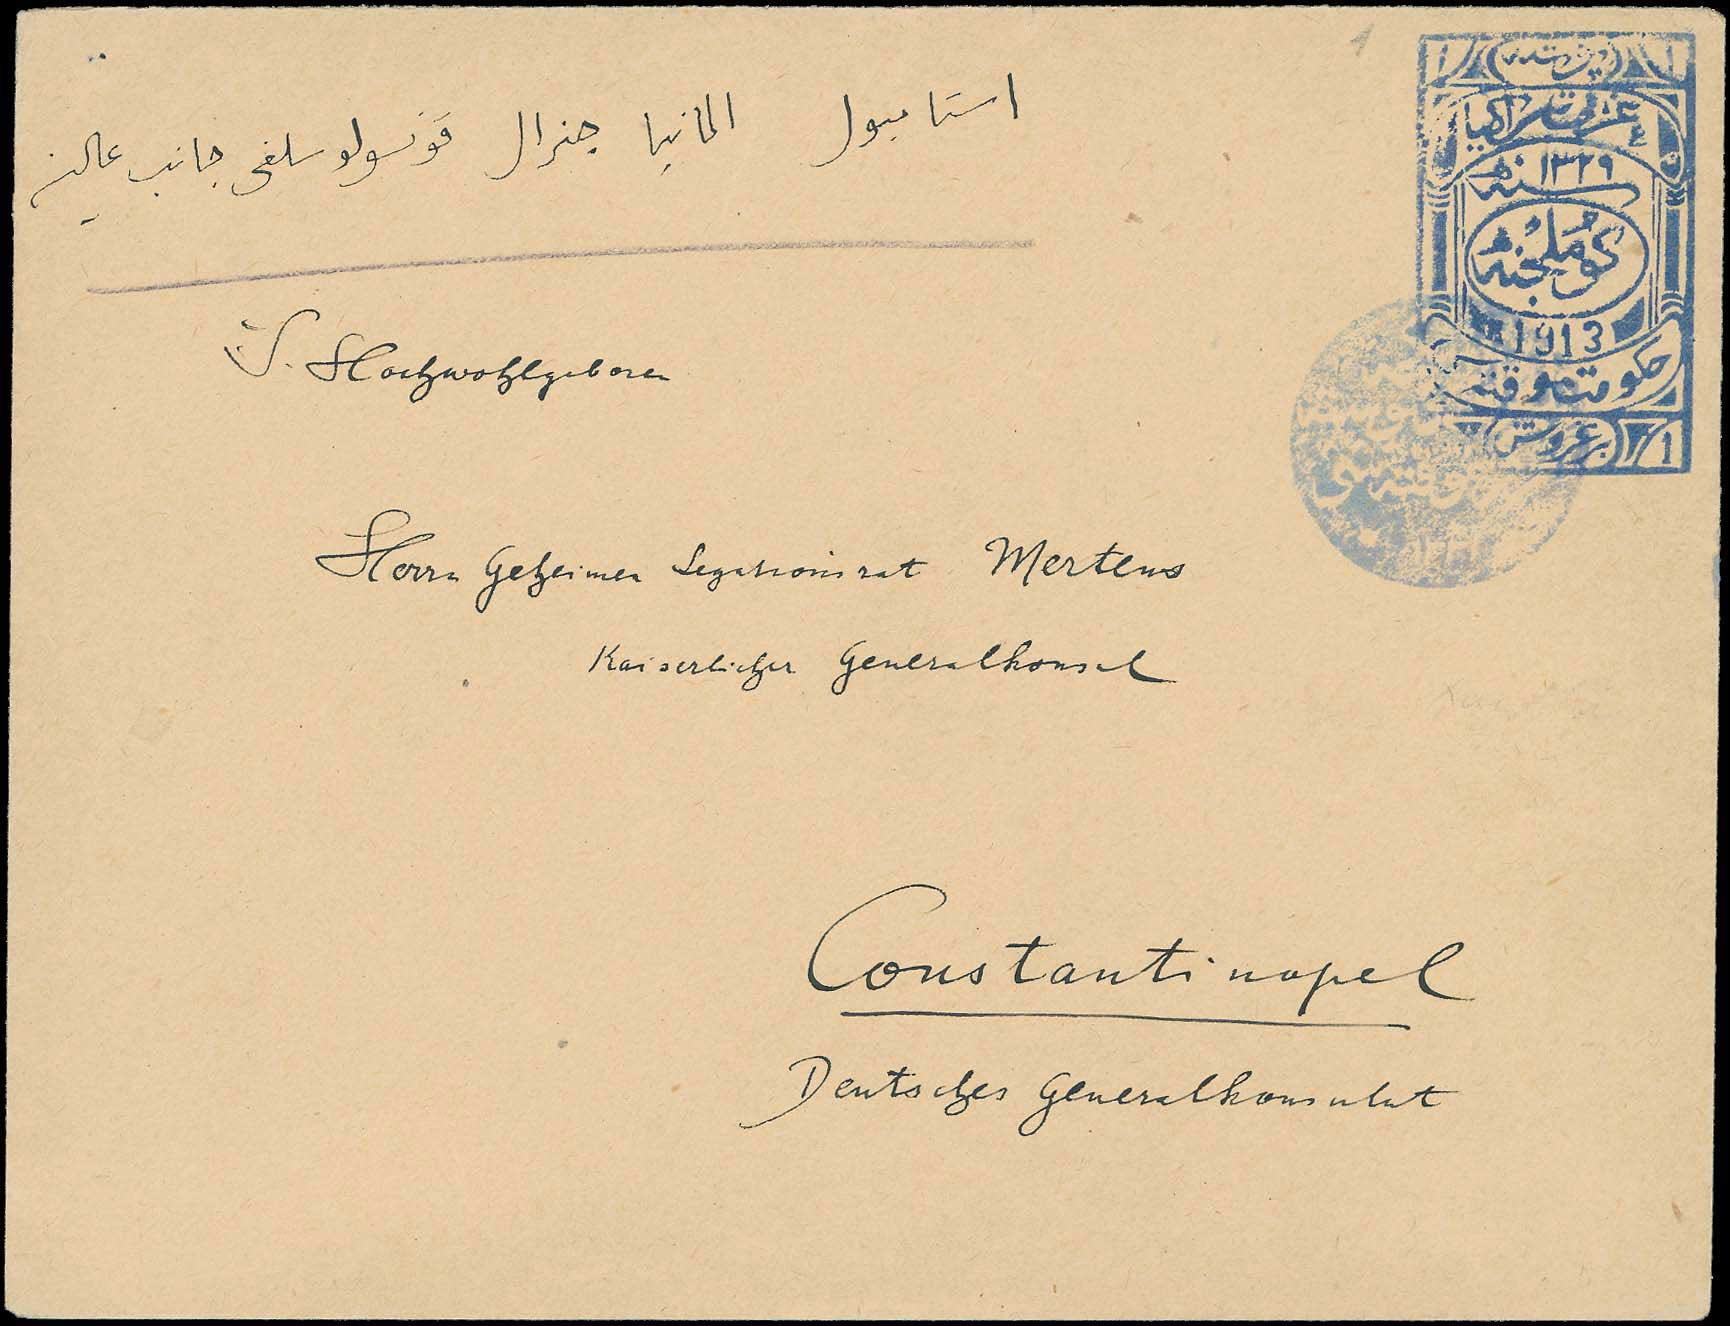 استامبول المانيا جنرال قونسولوسلغى جانب
S. Hochwohlgeboren
Herrn Geheimen Legationsrat Mertens
Kaiserlicher Generalkonsul
Constantinopel
Deutsches Generalkonsulat
غربى تراكيا
سنه ١٣٢٩
كوملجنه
1913
حكومت موقته
بر غروش 1